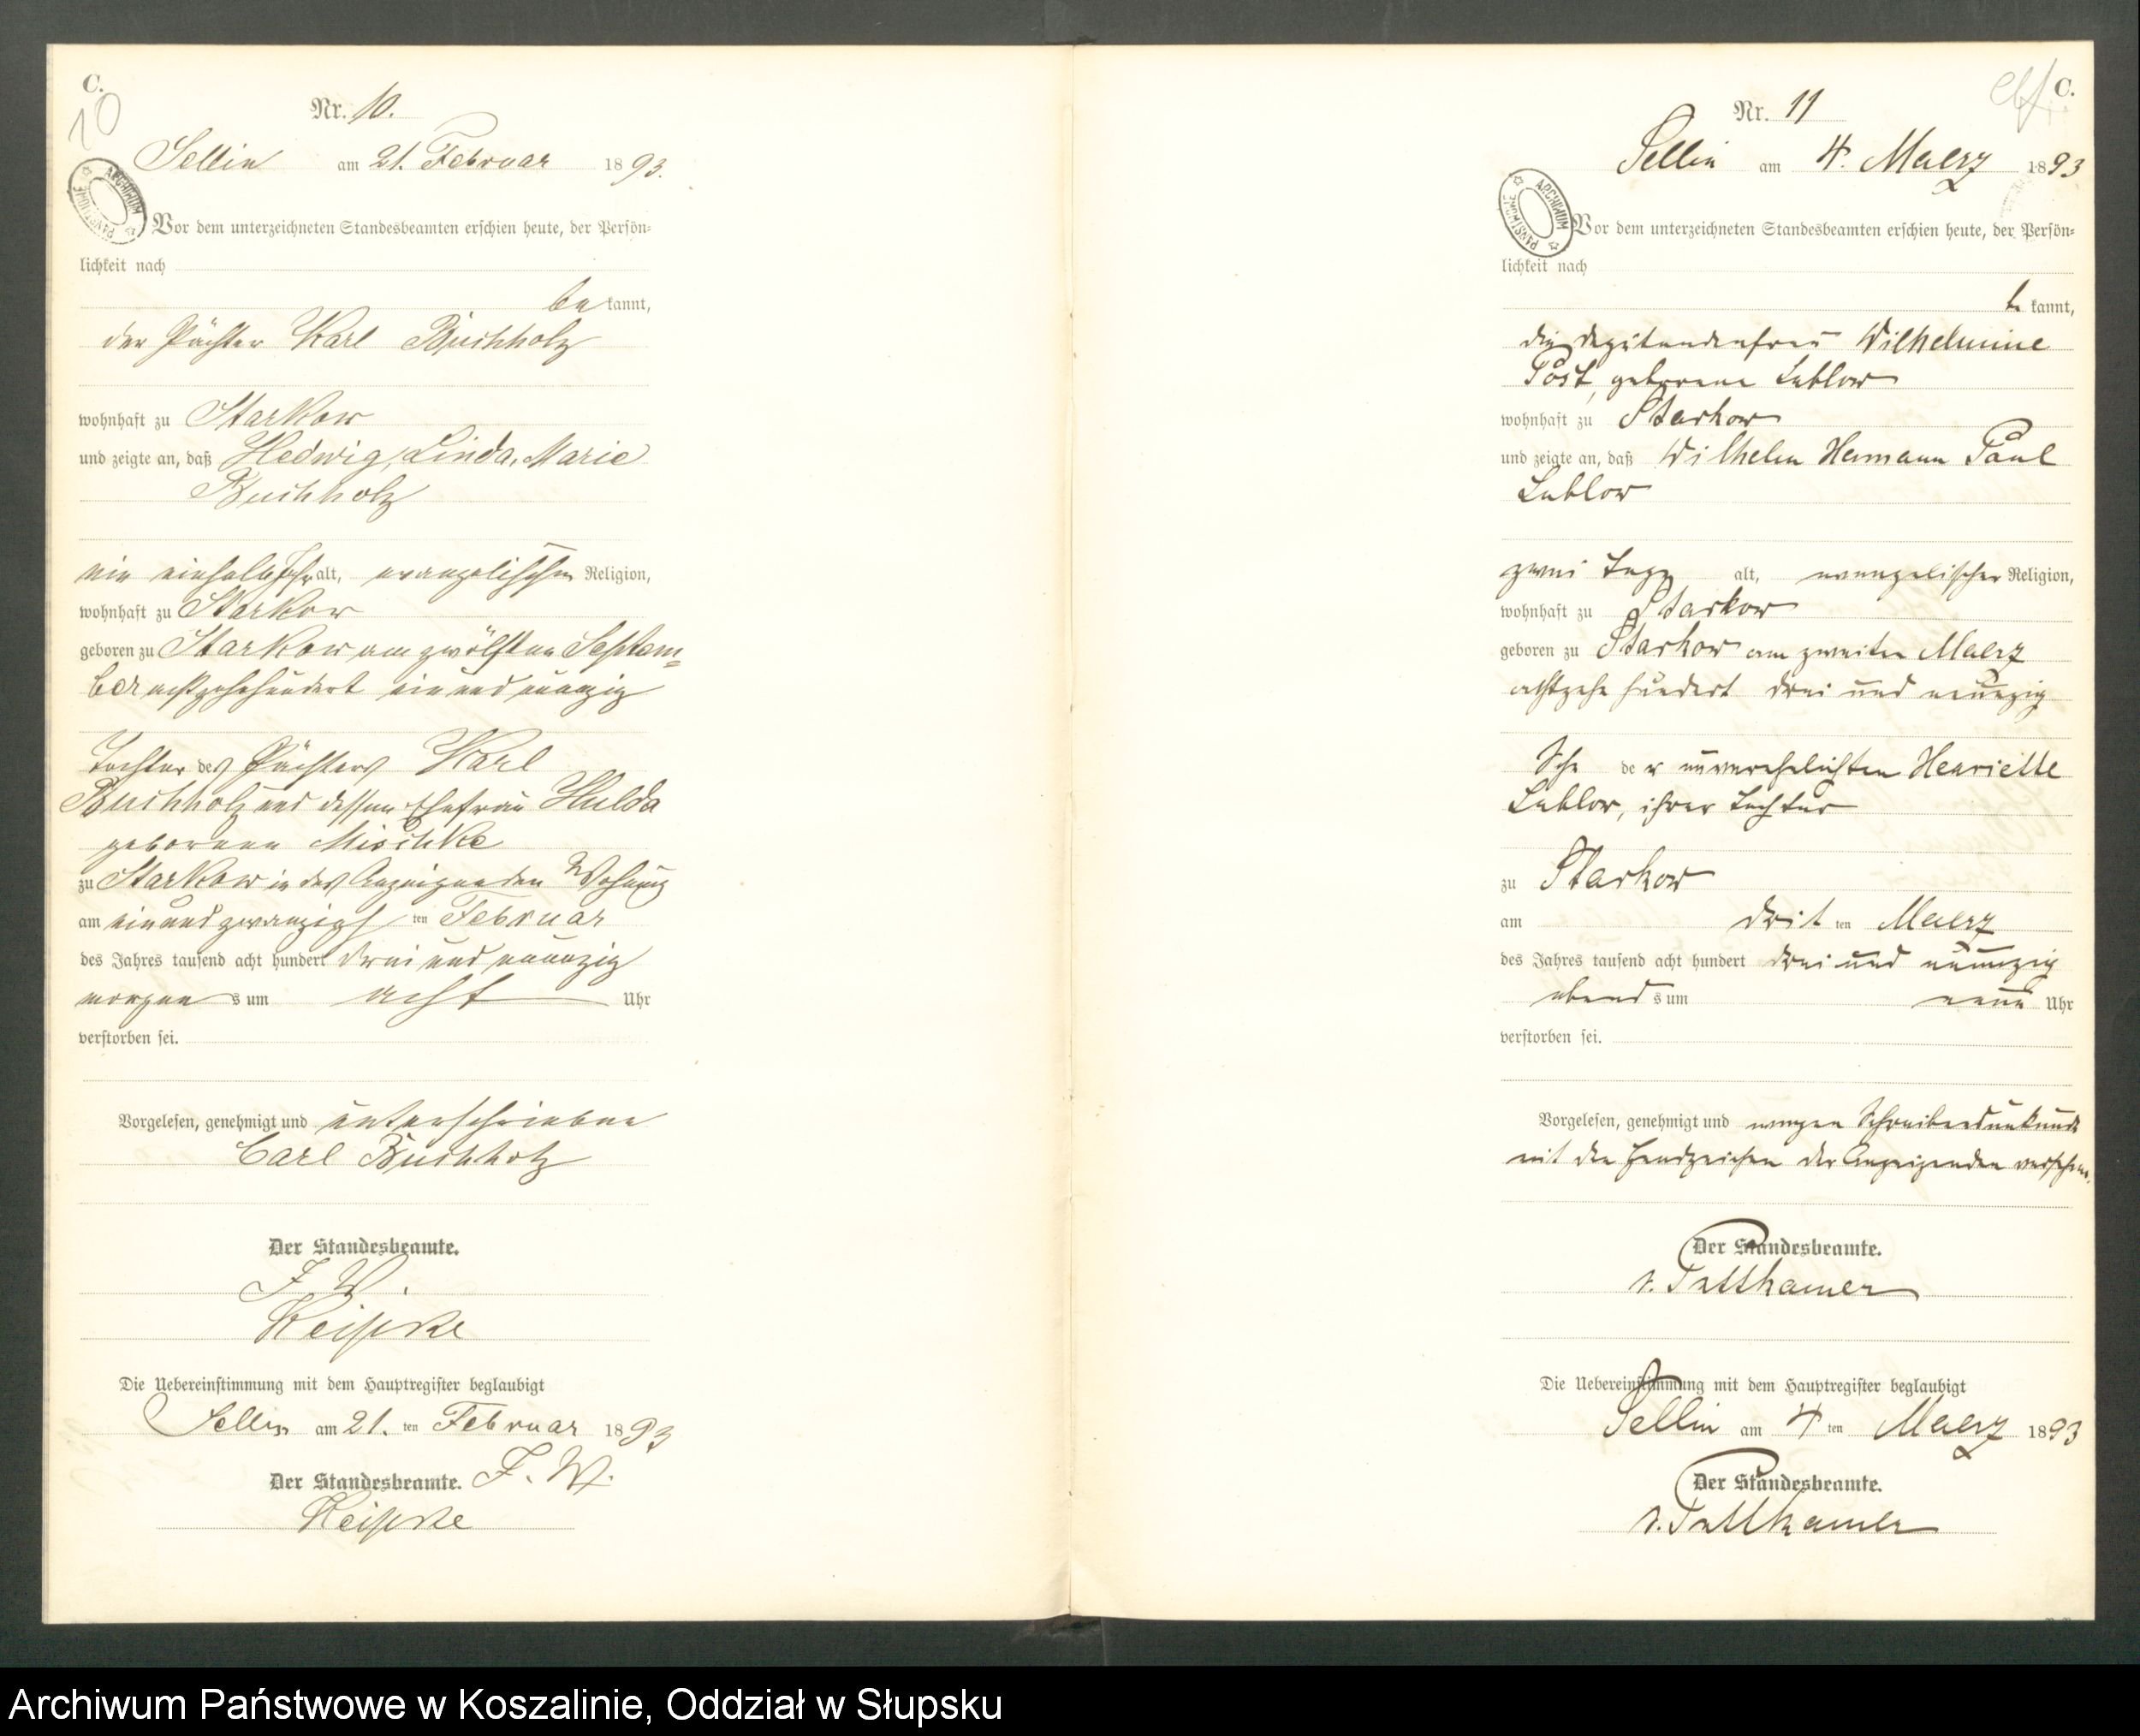 C.
10
Nr. 10.
Sellin am 21. Februar 1893.
ARCHIWUM PAŃSTWOWE
Vor dem unterzeichneten Standesbeamten erschien heute, der Persön=
lichkeit nach
be kannt,
der Pächter Karl Buchholz
wohnhaft zu Starkow
und zeigte an, daß Hedwig, Linda, Marie
Buchholz
ein einhalb Jahr alt, evangelischen Religion,
wohnhaft zu Starkow
geboren zu Starkow am zwölften Septem=
ber achtzehnhundert ein und neunzig
Tochter des Pächters Karl
Buchholz und dessen Ehefrau Hulda
geborenen Mischke
zu Starkow in des Anzeigenden Wohnung
am ein und zwanzigsten Februar
des Jahres tausend acht hundert drei und neunzig
morgens um acht Uhr
verstorben sei.
Vorgelesen, genehmigt und unterschrieben
Carl Buchholz
Der Standesbeamte.
J. W.
Die Uebereinstimmung mit dem Hauptregister beglaubigt
Sellin am 21. ten Februar 1893
Der Standesbeamte.
C.
elf
Nr. 11
Sellin am 4. Maerz 1893
ARCHIWUM PAŃSTWOWE
Vor dem unterzeichneten Standesbeamten erschien heute, der Persön=
lichkeit nach
be kannt,
die Deputandenfrau Wilhelmine
Post, geborene Lablow
wohnhaft zu Starkow
und zeigte an, daß Wilhelm Hermann Paul
Lablow
zwei Tage alt, evangelischer Religion,
wohnhaft zu Starkow
geboren zu Starkow am zweiten Maerz
achtzehn hundert drei und neunzig
Sohn der unverehelichten Henriette
Lablow, ihrer Tochter
zu Starkow
am dritten Maerz
des Jahres tausend acht hundert drei und neunzig
abends um neun Uhr
verstorben sei.
Vorgelesen, genehmigt und wegen Schreibensunkunde
mit den Handzeichen der Anzeigenden versehen.
Der Standesbeamte.
v. Puttkamer
Die Uebereinstimmung mit dem Hauptregister beglaubigt
Sellin am 4 ten Maerz 1893
Der Standesbeamte.
v. Puttkamer
Archiwum Państwowe w Koszalinie, Oddział w Słupsku